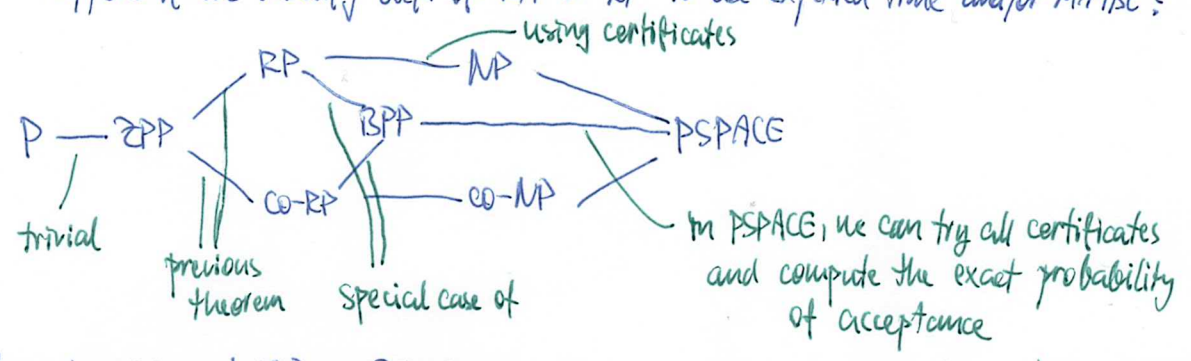 using certificates
RP NP
P ZPP BPP PSPACE
co-RP co-NP
trivial
previous
theorem
special case of
in PSPACE, we can try all certificates
and compute the exact probability
of acceptance